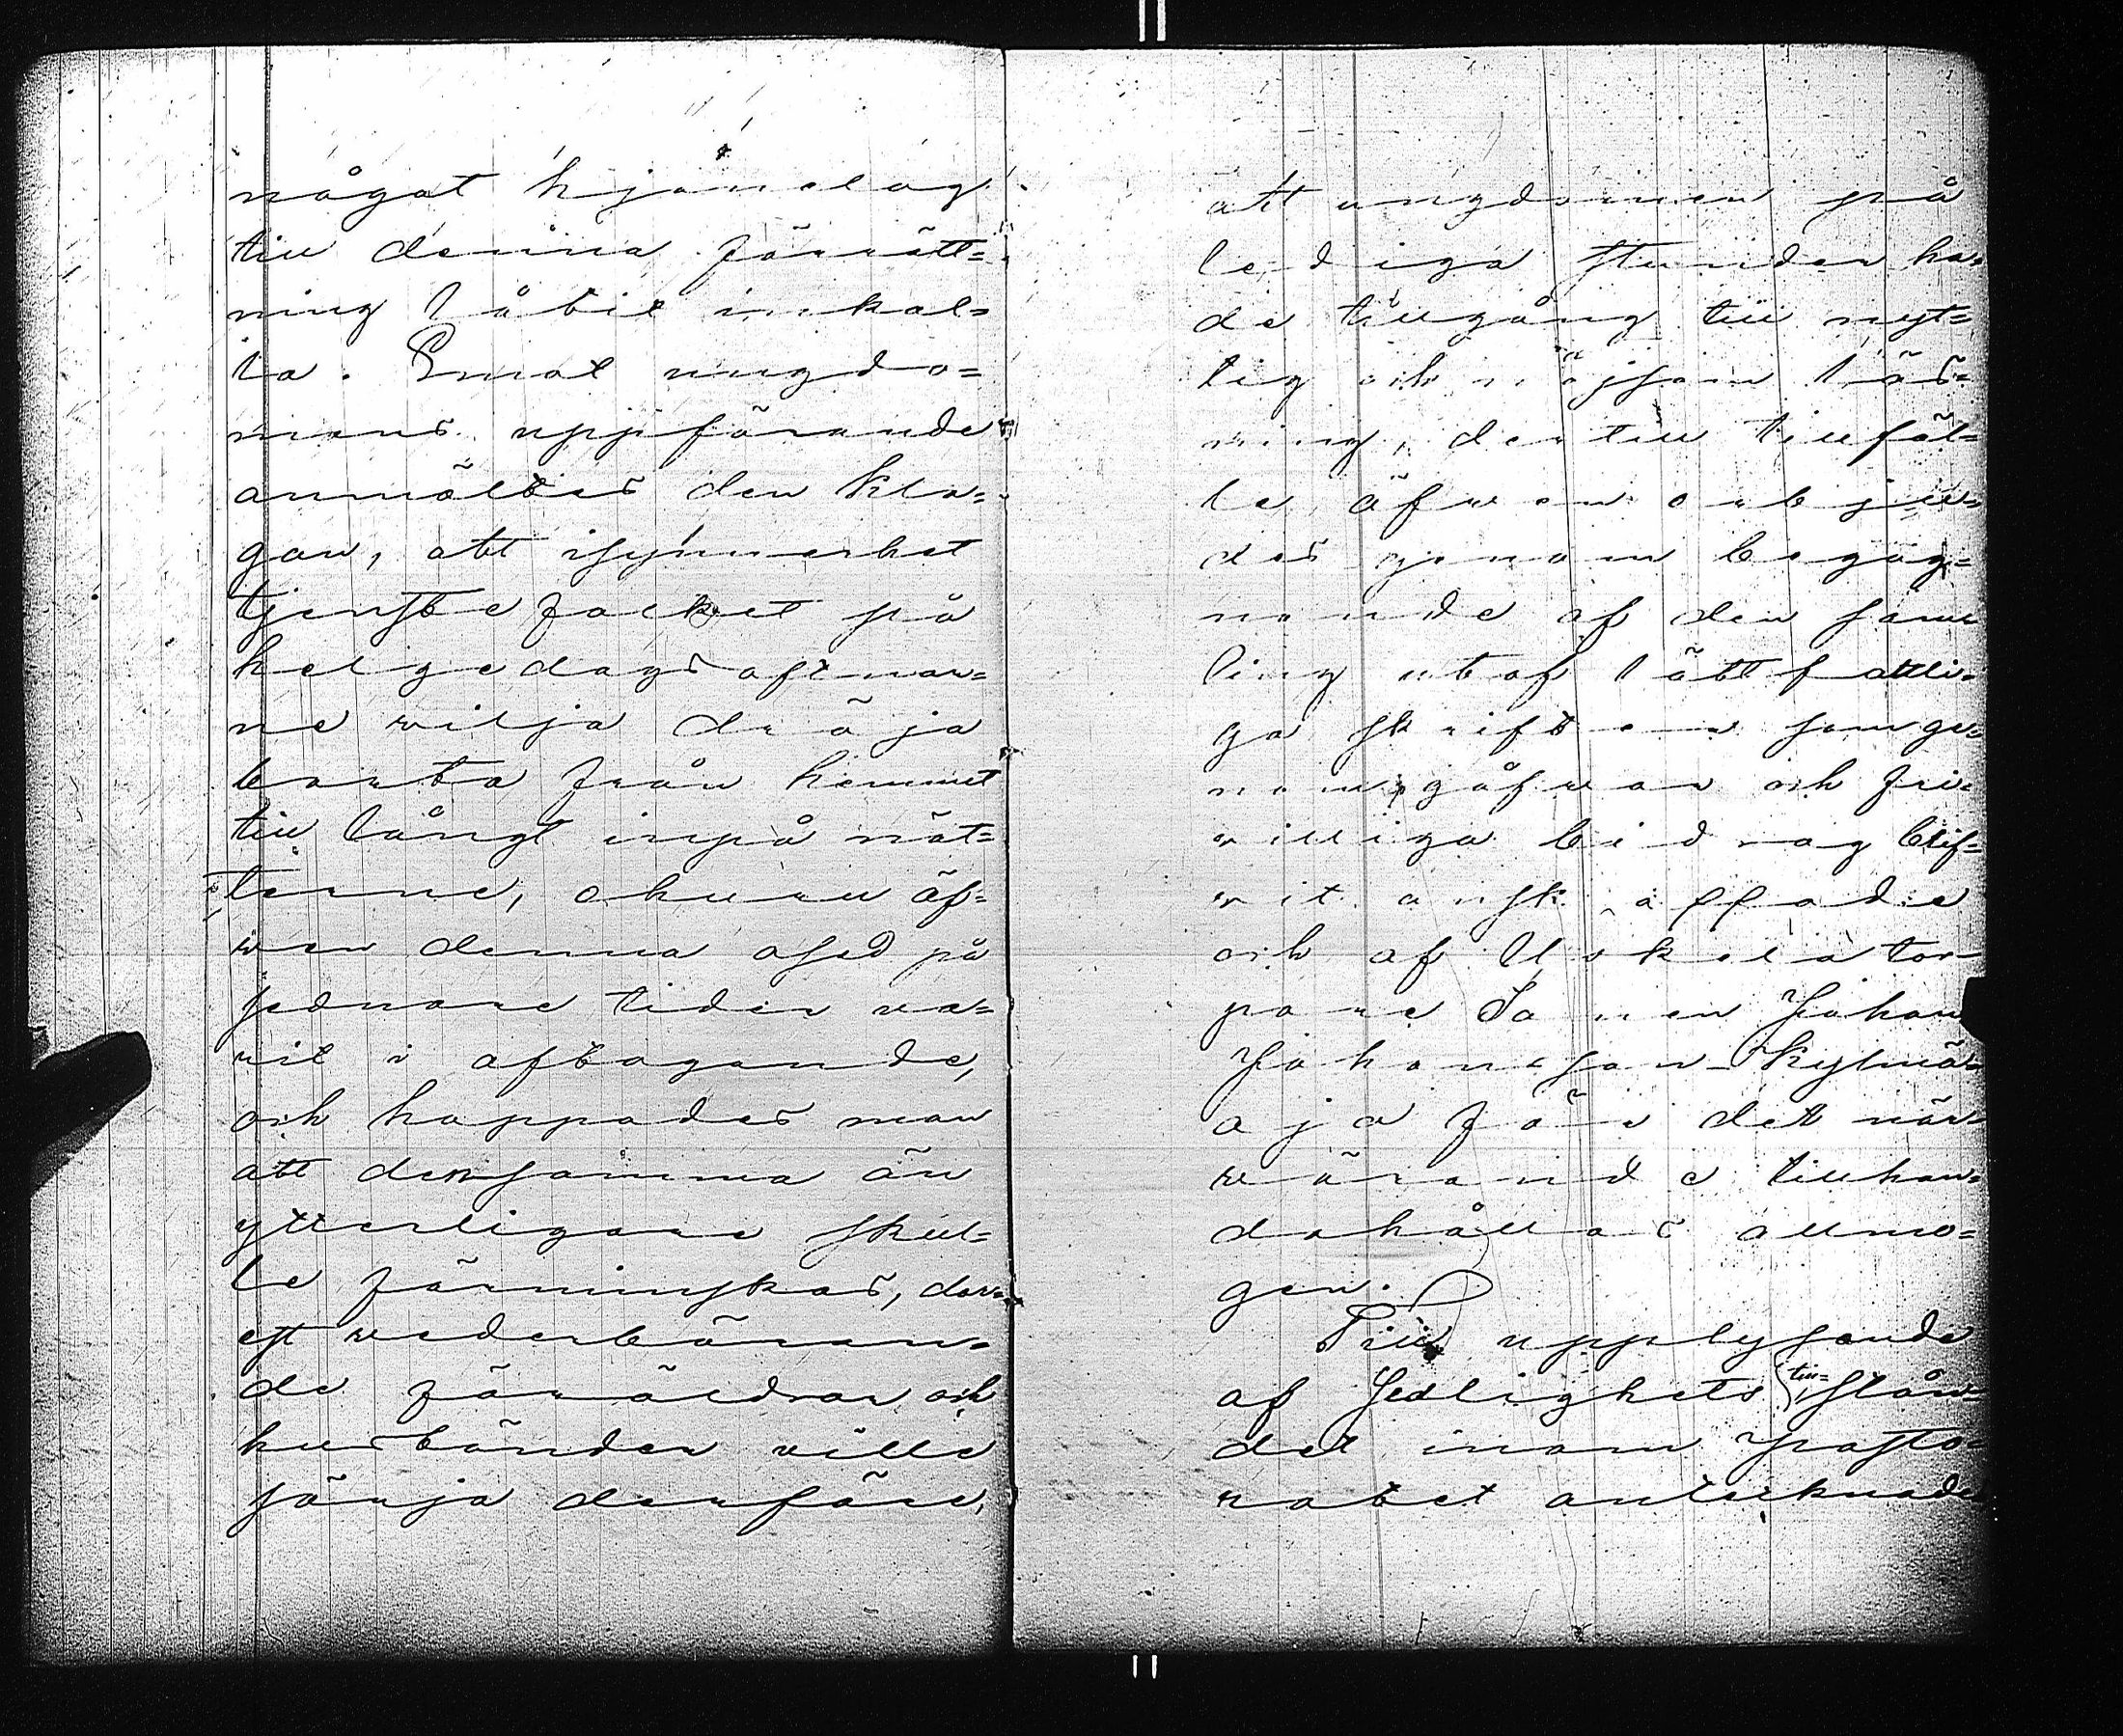 något hjonelag
till denna förrätt=
ning låtit inkal=
la. Emot ungdo=
mens uppförande
anmältes den kla=
gan, att isynnerhet
tjenstefolket på
helgedagsaftnar=
ne vilja dröja
borta från hemmet
till långt inpå nät=
terne, ehuru äf=
wen denna osed på
sednare tider va=
rit i aftagande,
och hoppades man
att densamma än
ytterligare skul=
le förminskas, der=
est wederböran=
de föräldrar och
husbönder ville
sörja derföre,
att ungdomen på
lediga stunder ha=
de tillgång till nyt=
tig och nöjsam läs=
ning, dertill tillfäl=
le äfwen erbju=
des genom begag=
nande af den sam
ling utaf lättfattli=
ga skrifter som ge=
nom gåfwor och fri=
williga bidrag blif=
wit anskaffade
och af Uskela tor=
pare Sonen Johan
Johansson Kylmä=
oja för det när=
warande tillhan=
dahållas allmo=
gen.
Till upplysande
af Sedlighets till=
stån=
det inom Pasto=
ratet antecknades